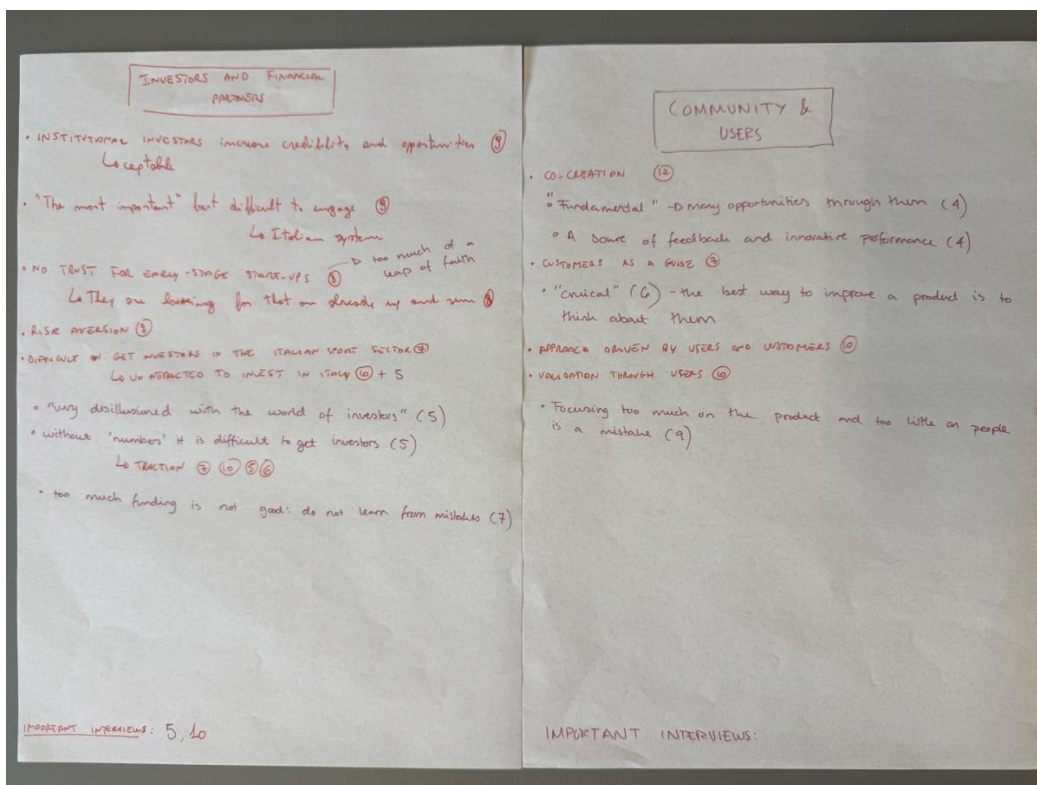 INVESTORS AND FINANCIAL
PARTNERS
• INSTITUTIONAL INVESTORS increase credibility and opportunities ⑨
"The most important" but difficult to engage
↳ Italian system
• NO TRUST FOR EARLY-STAGE START-UPS ⑧
▷ too much of a
leap of faith
↳ They are looking for that are already up and run ⑧
• RISK AVERSION
• DIFFICULT GET INVESTORS IN THE ITALIAN SECTOR ⑦
ATTRACTED TO INVEST IN ITALY ⑩ + 5
• "very disillusioned with the world of investors" (5)
• without 'numbers' it is difficult to get investors (5)
↳ TRACTION ⑦ ⑩ ⑤ ⑥
• too much funding is not good: do not learn from mistakes (7)
IMPORTANT INTERVIEWS: 5, 10
COMMUNITY &
USERS
• CO-CREATION ⑫
• "Fundamental" → many opportunities through them (4)
• A source of feedback and innovative performance (4)
• CUSTOMERS AS A GUIDE ⑦
• "Cruical" (6) - the best way to improve a product is to
think about them
• APPROACH DRIVEN BY USERS AND CUSTOMERS ⑩
• VALIDATION THROUGH USERS ⑩
• Focusing too much on the product and too little on people
is a mistake (9)
IMPORTANT INTERVIEWS: